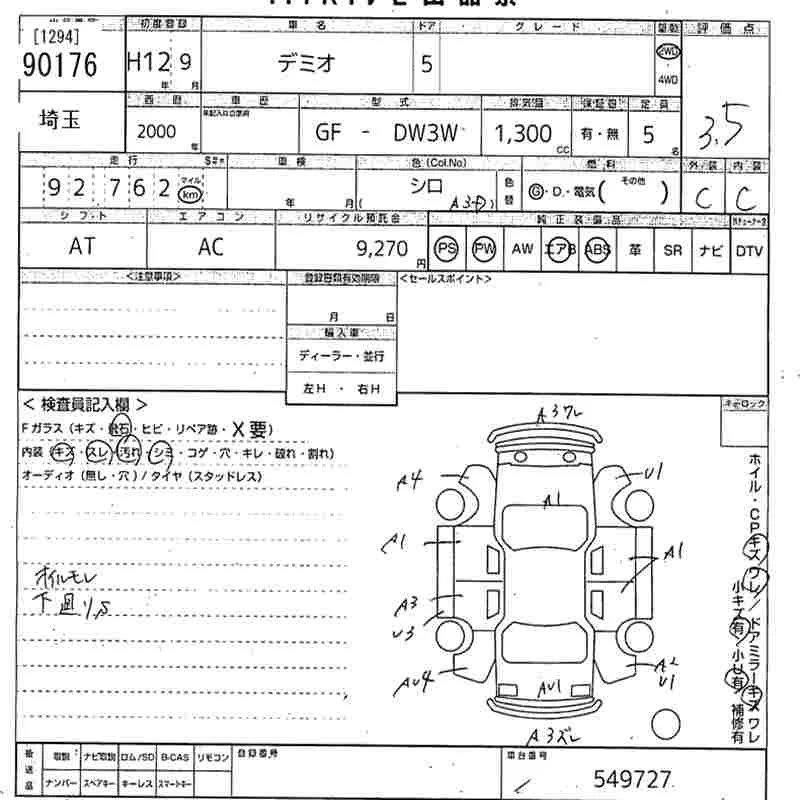 [1294]
90176
初度登録 車名 ドア グレード 駆動 評価点
H12 9 デミオ 5 2WD
年 月 4WD
埼玉
西暦 車歴 型式 排気量 保証書 定員
2000 年 GF - DW3W 1,300 CC 有・無 5 名 3.5
走行 車検 色(Col.No) 燃料 外装 内装
92,762 マイル km 年 月 シロ 色替 G・D・電気( その他 ) C C
シフト エアコン リサイクル預託金 純正装備品
AT AC 9,270 円 PS PW AW エアB ABS 革 SR ナビ DTV
<注意事項> 登録書類有効期限 <セールスポイント>
月 日
輸入車
ディーラー・並行
左H ・ 右H
< 検査員記入欄 > キーロック
Fガラス (キズ・飛石・ヒビ・リペア跡・X要)
内装 (キズ・スレ・汚れ・シミ・コゲ・穴・キレ・破れ・割れ)
オーディオ (無し・穴) / タイヤ (スタッドレス)
オイルモレ
下廻りS
A3ワレ
A4 U1
A1
A1 A1
A3
U3
A2
U1
AU4 AU1
A3ズレ
ホイル・CPキズワレ/ドアミラーキズワレ
小キズ有/小U有/補修有
後送品 取説 ナビ取説 ロム/SD B-CAS リモコン 登録番号 車台番号
ナンバー スペアキー キーレス スマートキー 549727